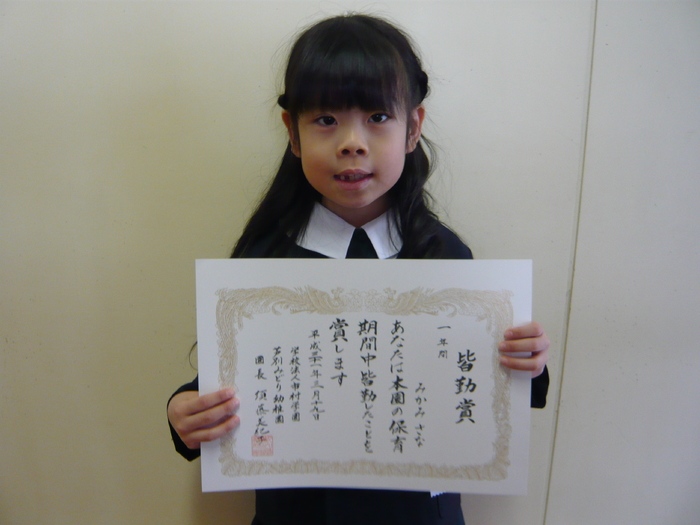 皆勤賞
一年間
みかみ さな
あなたは本園の保育
期間中皆勤したことを
賞します
平成三十一年三月十九日
学校法人市村学園
芦別みどり幼稚園
園長